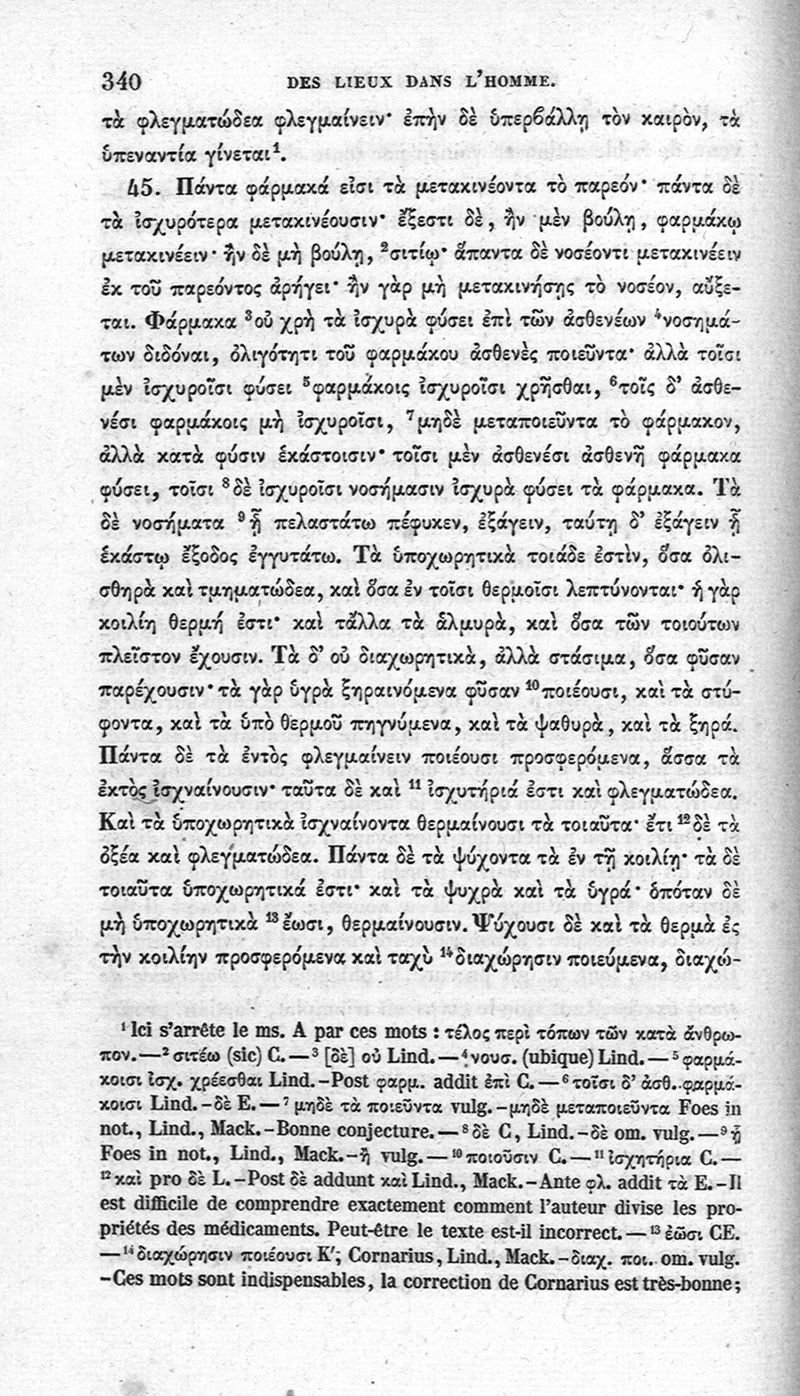 340 DES LIEUX DANS L'HOMME.
τὰ φλεγματώδεα φλεγμαίνειν· ἐπὴν δὲ ὑπερϐάλλῃ τὸν καιρὸν, τὰ
ὑπεναντία γίνεται¹.
45. Πάντα φάρμακά εἰσι τὰ μετακινέοντα τὸ παρεόν· πάντα δὲ
τὰ ἰσχυρότερα μετακινέουσιν· ἔξεστι δὲ, ἢν μὲν βούλῃ, φαρμάκῳ
μετακινέειν· ἢν δὲ μὴ βούλῃ, ²σιτίῳ· ἅπαντα δὲ νοσέοντι μετακινέειν
ἐκ τοῦ παρεόντος ἀρήγει· ἢν γὰρ μὴ μετακινήσῃς τὸ νοσέον, αὔξε-
ται. Φάρμακα ³οὐ χρὴ τὰ ἰσχυρὰ φύσει ἐπὶ τῶν ἀσθενέων ⁴νοσημά-
των διδόναι, ὀλιγότητι τοῦ φαρμάκου ἀσθενὲς ποιεῦντα· ἀλλὰ τοῖσι
μὲν ἰσχυροῖσι φύσει ⁵φαρμάκοις ἰσχυροῖσι χρῆσθαι, ⁶τοῖς δ' ἀσθε-
νέσι φαρμάκοις μὴ ἰσχυροῖσι, ⁷μηδὲ μεταποιεῦντα τὸ φάρμακον,
ἀλλὰ κατὰ φύσιν ἑκάστοισιν· τοῖσι μὲν ἀσθενέσι ἀσθενῆ φάρμακα
φύσει, τοῖσι ⁸δὲ ἰσχυροῖσι νοσήμασιν ἰσχυρὰ φύσει τὰ φάρμακα. Τὰ
δὲ νοσήματα ⁹ᾗ πελαστάτω πέφυκεν, ἐξάγειν, ταύτῃ δ' ἐξάγειν ᾗ
ἑκάστῳ ἔξοδος ἐγγυτάτω. Τὰ ὑποχωρητικὰ τοιάδε ἐστὶν, ὅσα ὀλι-
σθηρὰ καὶ τμηματώδεα, καὶ ὅσα ἐν τοῖσι θερμοῖσι λεπτύνονται· ἡ γὰρ
κοιλίη θερμή ἐστι· καὶ τἄλλα τὰ ἁλμυρὰ, καὶ ὅσα τῶν τοιούτων
πλεῖστον ἔχουσιν. Τὰ δ' οὐ διαχωρητικὰ, ἀλλὰ στάσιμα, ὅσα φῦσαν
παρέχουσιν· τὰ γὰρ ὑγρὰ ξηραινόμενα φῦσαν ¹⁰ποιέουσι, καὶ τὰ στύ-
φοντα, καὶ τὰ ὑπὸ θερμοῦ πηγνύμενα, καὶ τὰ ψαθυρὰ, καὶ τὰ ξηρά.
Πάντα δὲ τὰ ἐντὸς φλεγμαίνειν ποιέουσι προσφερόμενα, ἅσσα τὰ
ἐκτὸς ἰσχναίνουσιν· ταῦτα δὲ καὶ ¹¹ἰσχυτήριά ἐστι καὶ φλεγματώδεα.
Καὶ τὰ ὑποχωρητικὰ ἰσχναίνοντα θερμαίνουσι τὰ τοιαῦτα· ἔτι ¹²δὲ τὰ
ὀξέα καὶ φλεγματώδεα. Πάντα δὲ τὰ ψύχοντα τὰ ἐν τῇ κοιλίῃ· τὰ δὲ
τοιαῦτα ὑποχωρητικά ἐστι· καὶ τὰ ψυχρὰ καὶ τὰ ὑγρά· ὁπόταν δὲ
μὴ ὑποχωρητικὰ ¹³ἔωσι, θερμαίνουσιν. Ψύχουσι δὲ καὶ τὰ θερμὰ ἐς
τὴν κοιλίην προσφερόμενα καὶ ταχὺ ¹⁴διαχώρησιν ποιεύμενα, διαχώ-
¹ Ici s'arrête le ms. A par ces mots : τέλος περὶ τόπων τῶν κατὰ ἄνθρω-
πον.—² σιτέω (sic) C.—³ [δὲ] οὐ Lind.—⁴ νουσ. (ubique) Lind.—⁵ φαρμά-
κοισι ἰσχ. χρέεσθαι Lind.-Post φαρμ. addit ἐπὶ C.—⁶ τοῖσι δ' ἀσθ. φαρμά-
κοισι Lind.-δὲ E.—⁷ μηδὲ τὰ ποιεῦντα vulg.-μηδὲ μεταποιεῦντα Foes in
not., Lind., Mack.-Bonne conjecture.—⁸ δὲ C, Lind.-δὲ om. vulg.—⁹ ᾗ
Foes in not., Lind., Mack.-ἢ vulg.—¹⁰ ποιοῦσιν C.—¹¹ ἰσχητήρια C.—
¹² καὶ pro δὲ L.-Post δὲ addunt καὶ Lind., Mack.-Ante φλ. addit τὰ E.-Il
est difficile de comprendre exactement comment l'auteur divise les pro-
priétés des médicaments. Peut-être le texte est-il incorrect.—¹³ ἐῶσι CE.
—¹⁴ διαχώρησιν ποιέουσι K', Cornarius, Lind., Mack.-διαχ. ποι. om. vulg.
-Ces mots sont indispensables, la correction de Cornarius est très-bonne;